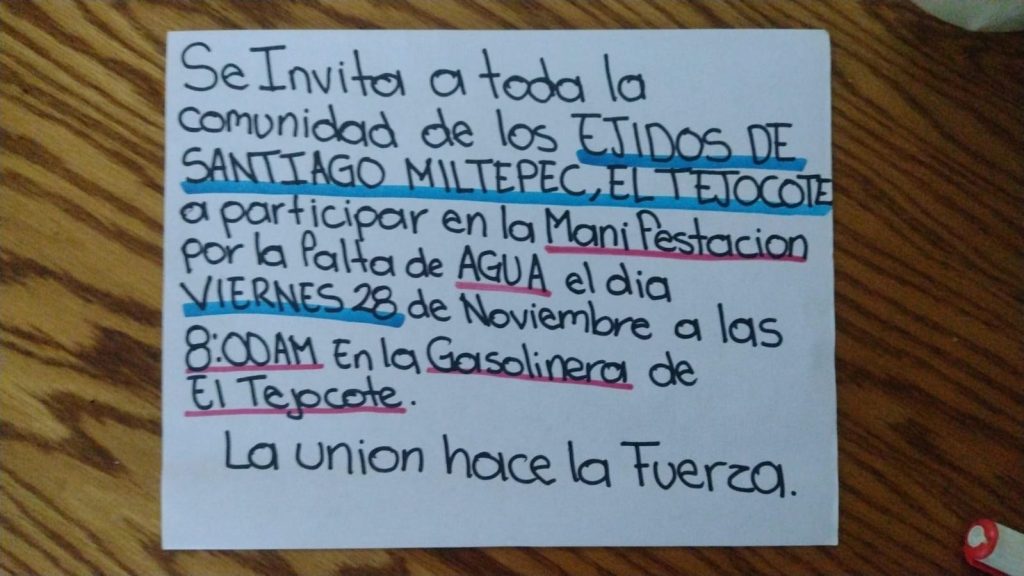 Se Invita a toda la
comunidad de los EJIDOS DE
SANTIAGO MILTEPEC, EL TEJOCOTE
a participar en la Manifestacion
por la falta de AGUA el dia
VIERNES 28 de Noviembre a las
8:00AM En la Gasolinera de
El Tejocote.
La union hace la Fuerza.